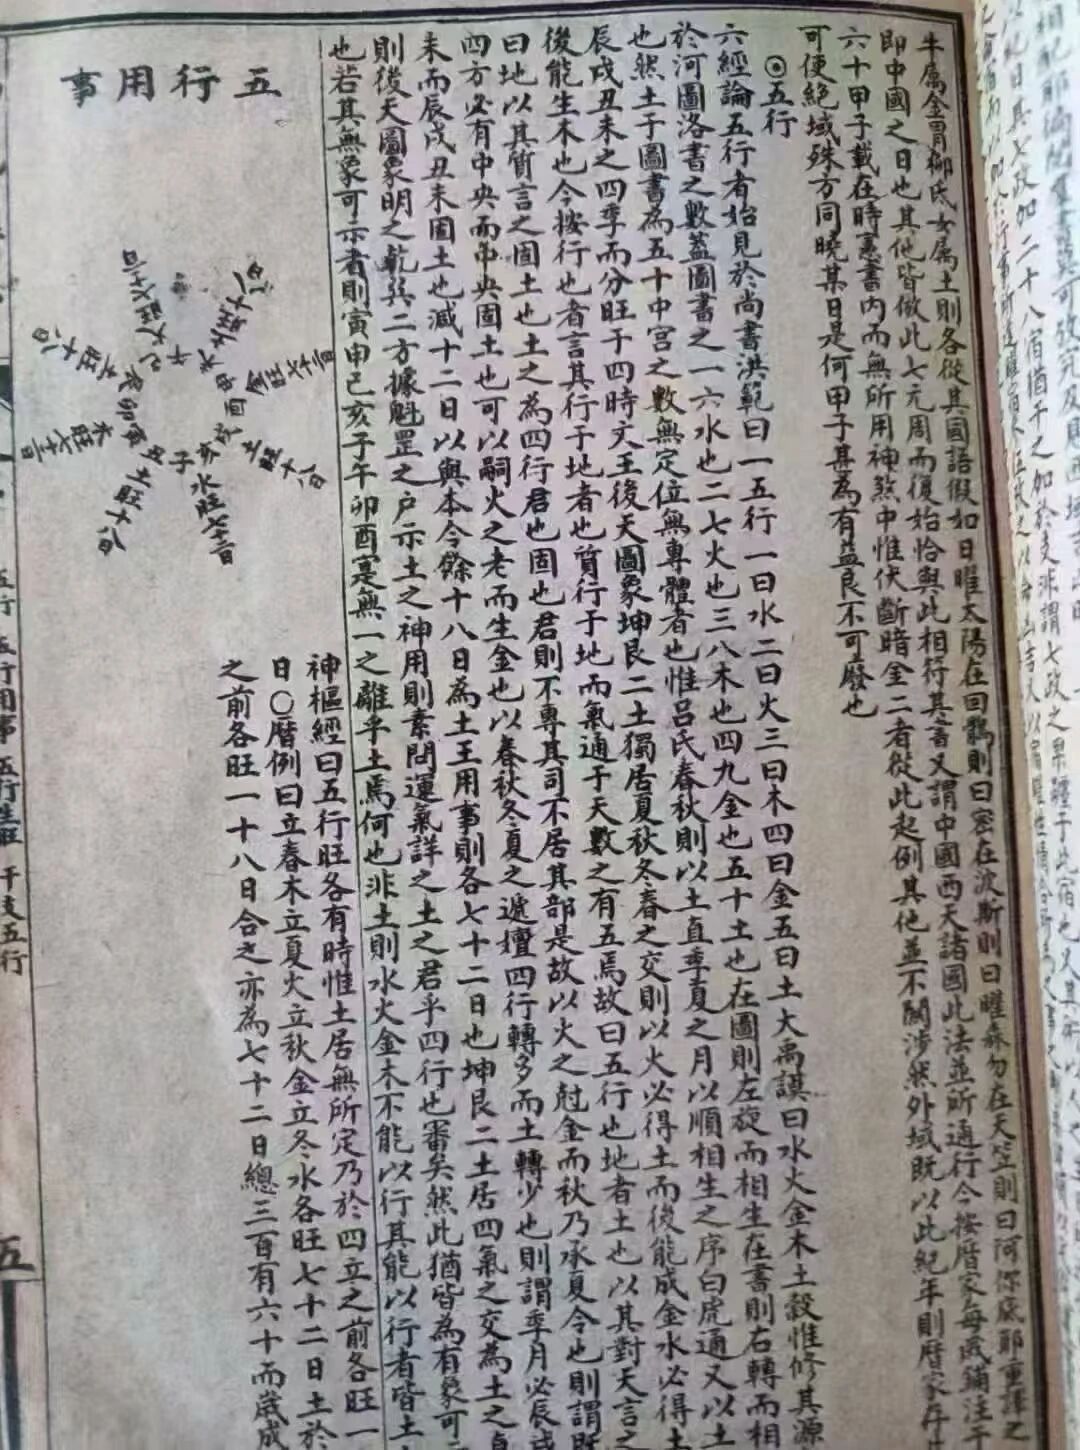 牛属金胃柳氐女属土則各從其國語假如日曜太陽在回鶻則曰密在波斯則曰曜森勿在天竺則曰阿你底耶重譯之
即中國之日也其他皆倣此七元周而復始恰與此相行其書又謂中國西天諸國此法並所通行今按暦家每歲鋪注于
六十甲子載在時憲書内而無所用神煞中惟伏斷暗金二者從此起例其他並不關涉然外域既以此紀年則暦家存
可使絶域殊方同曉某日是何甲子甚為有益良不可廢也
◎五行
六經論五行者始見於尚書洪範曰一五行一曰水二曰火三曰木四曰金五曰土大禹謨曰水火金木土穀惟修其源
於河圖洛書之數蓋圖書之一六水也二七火也三八木也四九金也五十土也在圖則左旋而相生在書則右轉而相
也然土于圖書為五十中宮之數無定位無專體者也惟呂氏春秋則以土直季夏之月以順相生之序白虎通又以土
辰戌丑未之四季而分旺于四時文王後天圖象坤艮二土獨居夏秋冬春之交則以火必得土而後能成金水必得土
後能生木也今按行也者言其行于地者也質行于地而氣通于天數之有五焉故曰五行也地者土也以其對天言之
曰地以其質言之固土也土之為四行君也固也君則不專其司不居其部是故以火之尅金而秋乃承夏令也則謂旺
四方必有中央而中央固土也可以嗣火之老而生金也以春秋冬夏之遞嬗四行轉多而土轉少也則謂季月必辰戌
未而辰戌丑未固土也減十二日以與本令餘十八日為土王用事則各七十二日也坤艮二土居四氣之交為土之
則後天圖象明之乾巽二方據魁罡之戶示土之神用則素問運氣詳之土之君乎四行也審矣然此猶皆為有象可
也若其無象可示者則寅申巳亥子午卯酉寔無一之離乎土焉何也非土則水火金木不能以行其能以行者皆土
五行用事
土旺十八日
金旺七十二日
土旺十八日
水旺七十二日
土旺十八日
木旺七十二日
土旺十八日
火旺七十二日
子
丑
寅
卯
辰
巳
午
未
申
酉
戌
亥
神樞經曰五行旺各有時惟土居無所定乃於四立之前各旺一
日○暦例曰立春木立夏火立秋金立冬水各旺七十二日土於
之前各旺一十八日合之亦為七十二日總三百有六十而歲成
五行 五行用事 五行生旺 干支五行
五